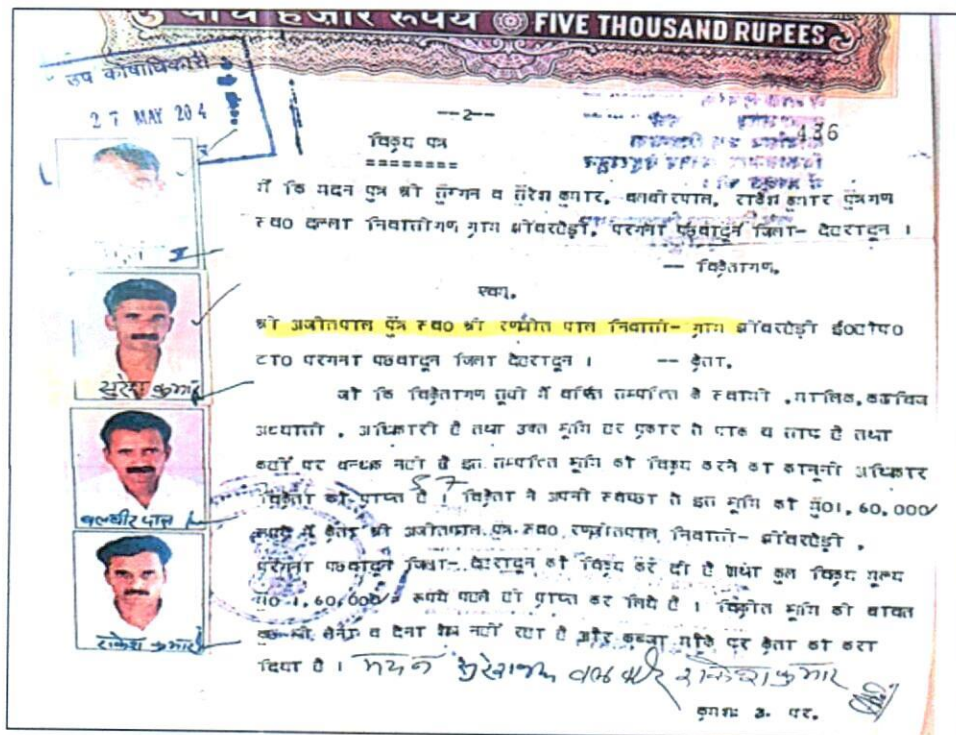 पांच हजार रूपये FIVE THOUSAND RUPEES
उप कोषाधिकारी
27 MAY 204
--2--
436
विक्रय पत्र
========
मैं कि मदन पुत्र श्री व सुरेश कुमार, बलबीरपाल, राकेश कुमार पुत्रगण
स्व0 निवासीगण ग्राम परगना पछवादून जिला- देहरादून ।
-- विक्रेतागण,
एवम्,
श्री अजीतपाल पुत्र स्व0 श्री रणजीत पाल निवासी- ग्राम
परगना पछवादून जिला देहरादून । -- क्रेता,
सुरेश कुमार
जो कि विक्रेतागण सूची में वर्णित सम्पत्ति के स्वामी ,मालिक,काबिज
अध्यासी , अधिकारी है तथा उक्त भूमि हर प्रकार से पाक व साफ है तथा
कहीं पर बन्धक नहीं है इस सम्पत्ति भूमि को विक्रय करने का कानूनी अधिकार
विक्रेता को प्राप्त है । विक्रेता ने अपनी स्वेच्छा से इस भूमि को मु01,60,000/
बलबीर पाल
रूपये में क्रेता श्री अजीतपाल पुत्र स्व0 रणजीतपाल निवासी- ,
परगना पछवादून जिला- देहरादून को विक्रय कर दी है तथा कुल विक्रय मूल्य
मु0 1,60,000/= रूपये पहले ही प्राप्त कर लिये है । विक्रीत भूमि की बाबत
लेना व देना शेष नहीं रहा है और कब्जा मौके पर क्रेता को करा
राकेश कुमार
दिया है । मदन सुरेश बलबीर राकेश कुमार
क्रमशः 3. पर.